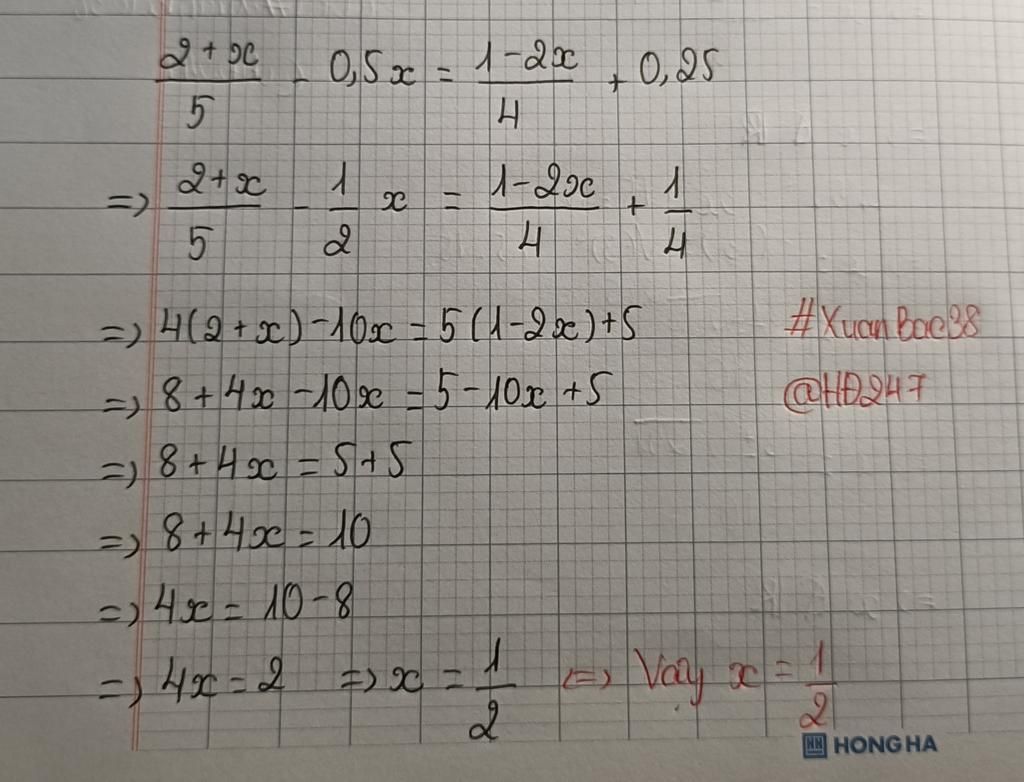 (2+x)/5 - 0,5x = (1-2x)/4 + 0,25
=> (2+x)/5 - 1/2 x = (1-2x)/4 + 1/4
=> 4(2+x)-10x=5(1-2x)+5 #XuanBac38
=> 8+4x-10x=5-10x+5 @HĐ247
=> 8+4x=5+5
=> 8+4x=10
=> 4x=10-8
=> 4x=2 => x=1/2 <=> Vậy x=1/2
HONG HA